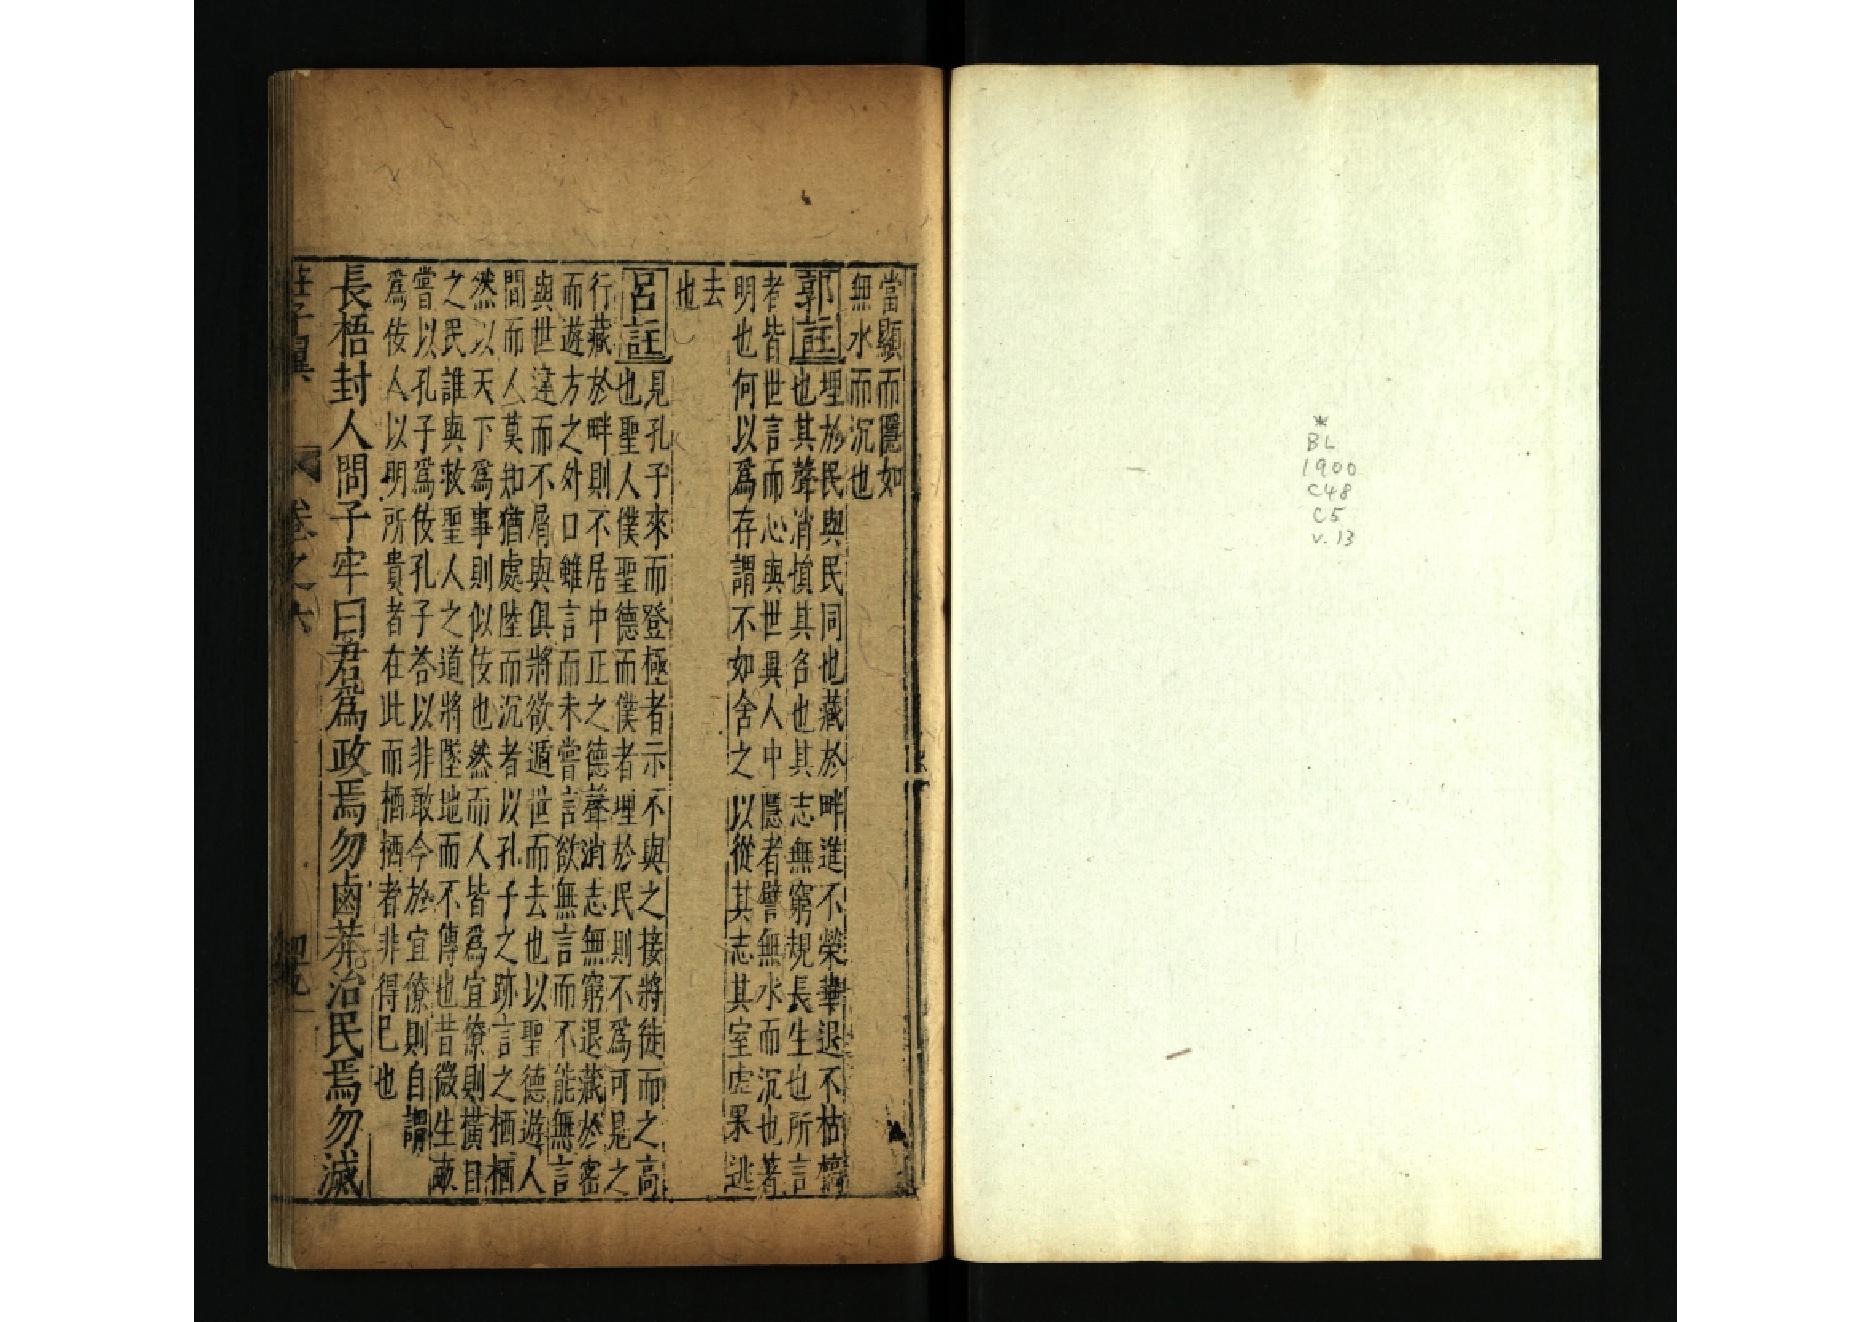 當顯而隱如
無水而沉也
郭註 埋於民與民同也藏於畔進不榮華退不枯槁
也其聲消慎其名也其志無窮規長生也所言
者皆世言而心與世異人中隱者譬無水而沉也著
明也何以爲存謂不如舍之以從其志其室虛果逃
去
也
呂註 見孔子來而登極者示不與之接將徙而之高
也聖人僕聖德而僕者埋於民則不爲可見之
行藏於畔則不居中正之德聲消志無窮退藏於密
而遊方之外口雖言而未嘗言欲無言而不能無言
與世違而不屑與俱將欲遁世而去也以聖德遊人
間而人莫知猶處陸而沉者以孔子之跡言之栖栖
然以天下爲事則似佞也然而人皆爲宜僚則橫目
之民誰與救聖人之道將墜地而不傳也昔微生畝
嘗以孔子爲佞孔子荅以非敢今於宜僚則自謂
爲佞人以明所貴者在此而栖栖者非得已也
長梧封人問子牢曰君爲政焉勿鹵莽治民焉勿滅
莊子翼 卷之六 四九
*
BL
1900
C48
C5
v.13